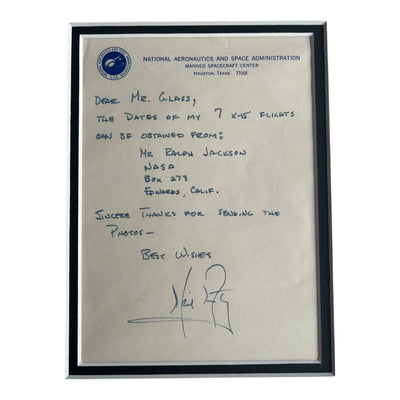 NATIONAL AERONAUTICS AND SPACE ADMINISTRATION
MANNED SPACECRAFT CENTER
HOUSTON, TEXAS 77058
DEAR MR. GLASS,
THE DATES OF MY 7 X-15 FLIGHTS
CAN BE OBTAINED FROM:
MR RALPH JACKSON
NASA
BOX 273
EDWARDS, CALIF.
SINCERE THANKS FOR SENDING THE
PHOTOS—
BEST WISHES
Neil